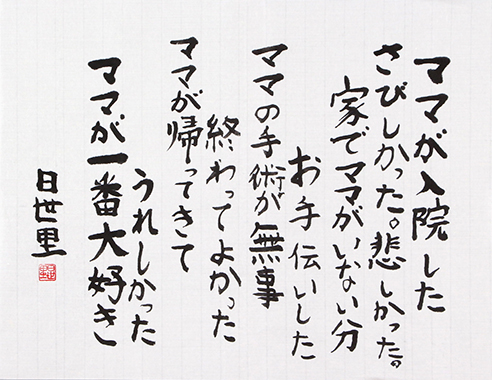 ママが入院した
さびしかった。悲しかった。
家でママがいない分
お手伝いした
ママの手術が無事
終わってよかった
ママが帰ってきて
うれしかった
ママが一番大好き
日世里